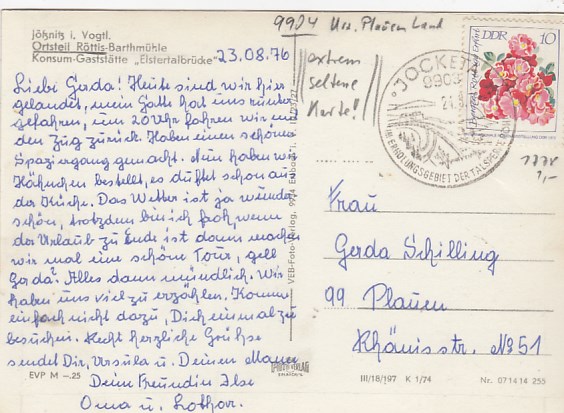 9904 Krs. Plauen Land
Jößnitz i. Vogtl.
Ortsteil Röttis-Barthmühle
Konsum-Gaststätte „Elstertalbrücke"
23.08.76
extrem
seltene
Karte!
DDR 10
JOCKETA
IM ERHOLUNGSGEBIET DER TALSPERRE
Liebe Gerda! Heute sind wir hier
gelandet, mein Gott hat uns
gefahren, um 20 Uhr fahren wir m.
den Zug zurück. Haben einen schönen
Spaziergang gemacht. Nun haben wir
Hähnchen bestellt, es duftet schon aus
der Küche. Das Wetter ist ja wunder
schön, trotzdem bin ich froh, wenn
der Urlaub zu Ende ist dann machen
wir mal eine schöne Tour, gell
Gerda? Alles dann mündlich. Wir
haben uns viel zu erzählen. Komme
einfach nicht dazu, Dich einmal zu
besuchen. Recht herzliche Grüße
sendet Dir, Ursula u. Deinen Mann
Deine Freundin Ilse
Oma u. Lothar.
VEB-Foto-Verlag, 9124 Erlbach i. V.
1,-
Frau
Gerda Schilling
99 Plauen
Rhänisstr. No 51
EVP M —.25
III/18/197 K 1/74
Nr. 071414 255